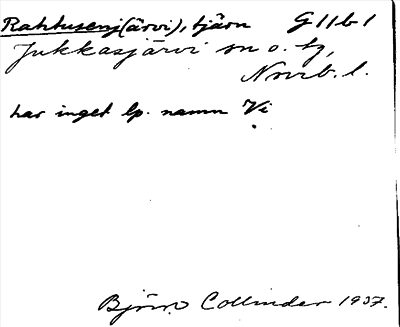 Rahtusenj(ärvi), tjärn G 11 b 1
Jukkasjärvi sn o. tg,
Nrrb. l.
har inget lp. namn Vi
Björn Collinder 1937.